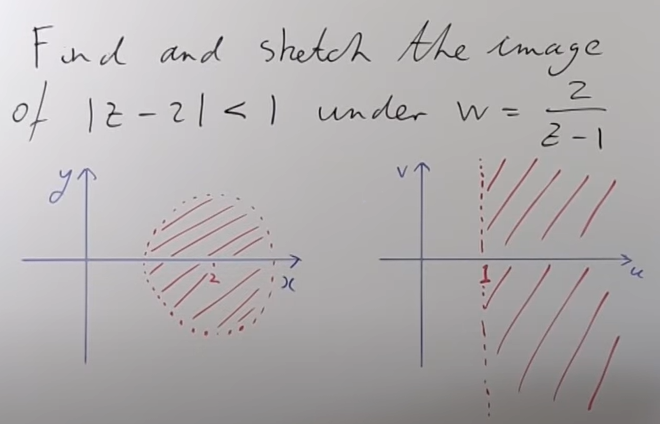 Find and sketch the image
of |z - 2| < 1 under w = 2/(z - 1)
y
x
2
v
u
1